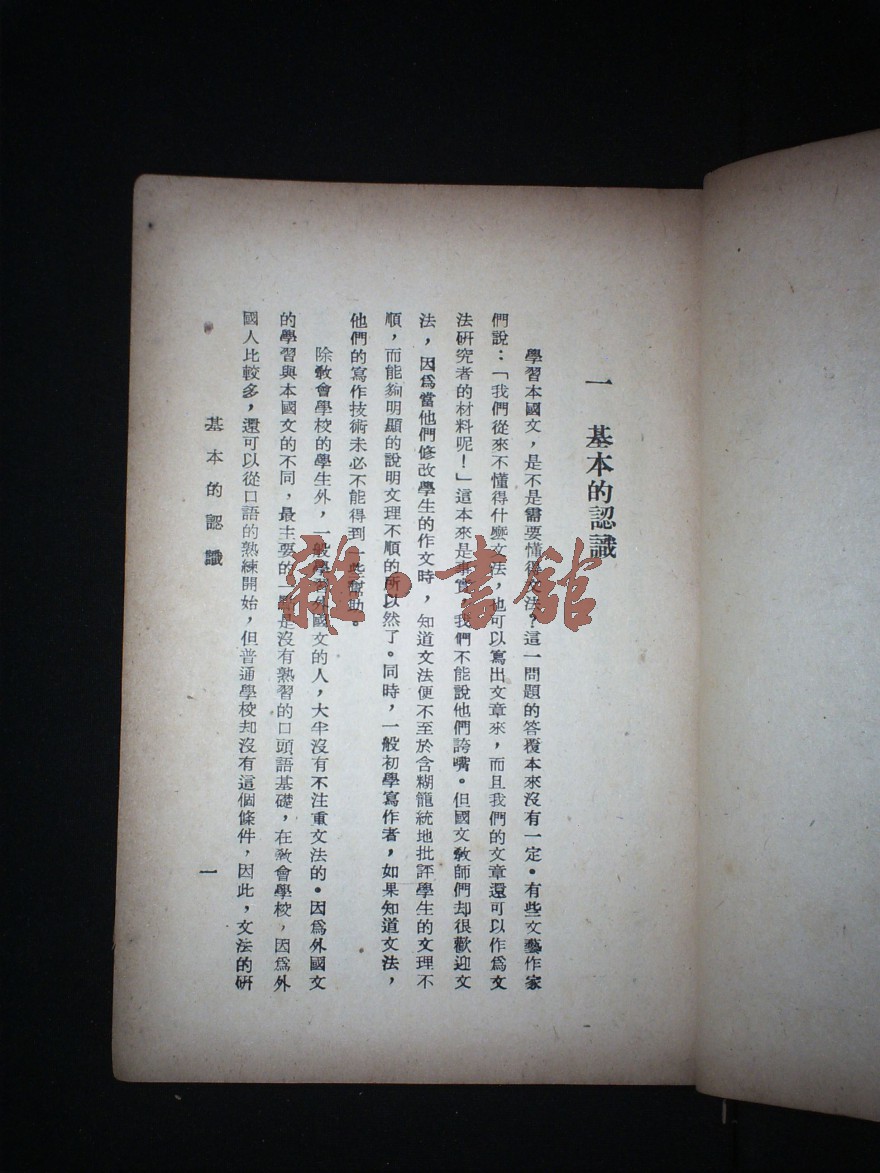 一 基本的認識
學習本國文，是不是需要懂得文法？這一問題的答覆本來沒有一定。有些文藝作家
們說：「我們從來不懂得什麽文法，也可以寫出文章來，而且我們的文章還可以作爲文
法研究者的材料呢！」這本來是事實，我們不能說他們誇嘴。但國文敎師們却很歡迎文
法，因爲當他們修改學生的作文時，知道文法便不至於含糊籠統地批評學生的文理不
順，而能夠明顯的說明文理不順的所以然了。同時，一般初學寫作者，如果知道文法，
他們的寫作技術未必不能得到一些幫助。
除敎會學校的學生外，一般學習外國文的人，大半沒有不注重文法的。因爲外國文
的學習與本國文的不同，最主要的一點是沒有熟習的口頭語基礎，在敎會學校，因爲外
國人比較多，還可以從口語的熟練開始，但普通學校却沒有這個條件，因此，文法的研
基本的認識
一
雜·書館